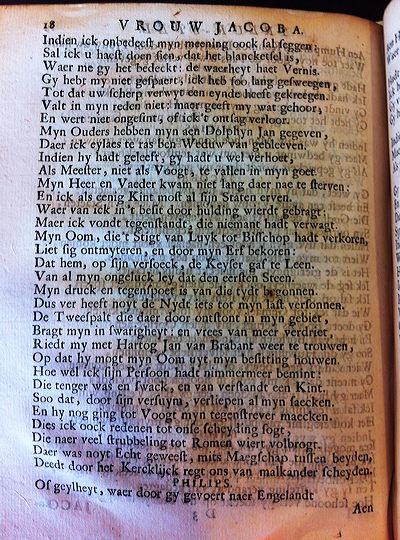 18 VROUW JACOBA.
Indien ick onbedeest myn meening oock sal seggen:
Sal ick u haest doen sien, dat het blancketsel is,
Waer me gy het bedeckt: de waerheyt haet Vernis.
Gy hebt my niet gespaert, ick heb soo lang gesweegen,
Tot dat uw scherp verwyt een eynde heeft gekreegen.
Valt in myn reden niet: maer geeft my wat gehoor,
En wert niet ongesint, of ick't ontsag verloor.
Myn Ouders hebben myn aen Dolphyn Jan gegeven,
Daer ick eylaes te ras ben Weduw van gebleeven.
Indien hy hadt geleeft, gy hadt u wel verhoet,
Als Meester, niet als Voogt, te vallen in myn goet.
Myn Heer en Vaeder kwam niet lang daer nae te sterven:
En ick als eenig Kint most al sijn Staten erven.
Waer van ick in't besit door hulding wierdt gebragt:
Maer ick vondt tegenstandt, die niemant hadt verwagt.
Myn Oom, die 't Stigt van Luyk tot Bisschop hadt verkoren,
Liet sig ontmyteren, en door myn Erf bekoren:
Dat hem, op sijn versoeck, de Keyser gaf te Leen.
Van al myn ongeluck ley dat den eersten Steen.
Myn druck en tegenspoet is van die tydt begonnen.
Dus ver heeft noyt de Nydt iets tot myn last versonnen.
De Tweespalt die daer door ontstont in myn gebiet,
Bragt myn in swarigheyt: en vrees van meer verdriet,
Riedt my met Hartog Jan van Brabant weer te trouwen,
Op dat hy mogt myn Oom uyt myn besitting houwen.
Hoe wel ick sijn Persoon hadt nimmermeer bemint:
Die tenger was en swack, en van verstandt een Kint.
Soo dat, door sijn versuym, verliepen al myn saecken.
En hy nog ging tot Voogt myn tegenstrever maecken.
Dies ick oock redenen tot onse scheyding sogt,
Die naer veel strubbeling tot Romen wiert volbrogt.
Daer was noyt Echt geweest, mits Maegschap tussen beyden,
Deedt door het Kercklijck regt ons van malkander scheyden.
PHILIPS.
Of geylheyt, waer door gy gevoert naer Engelandt
3
Aen